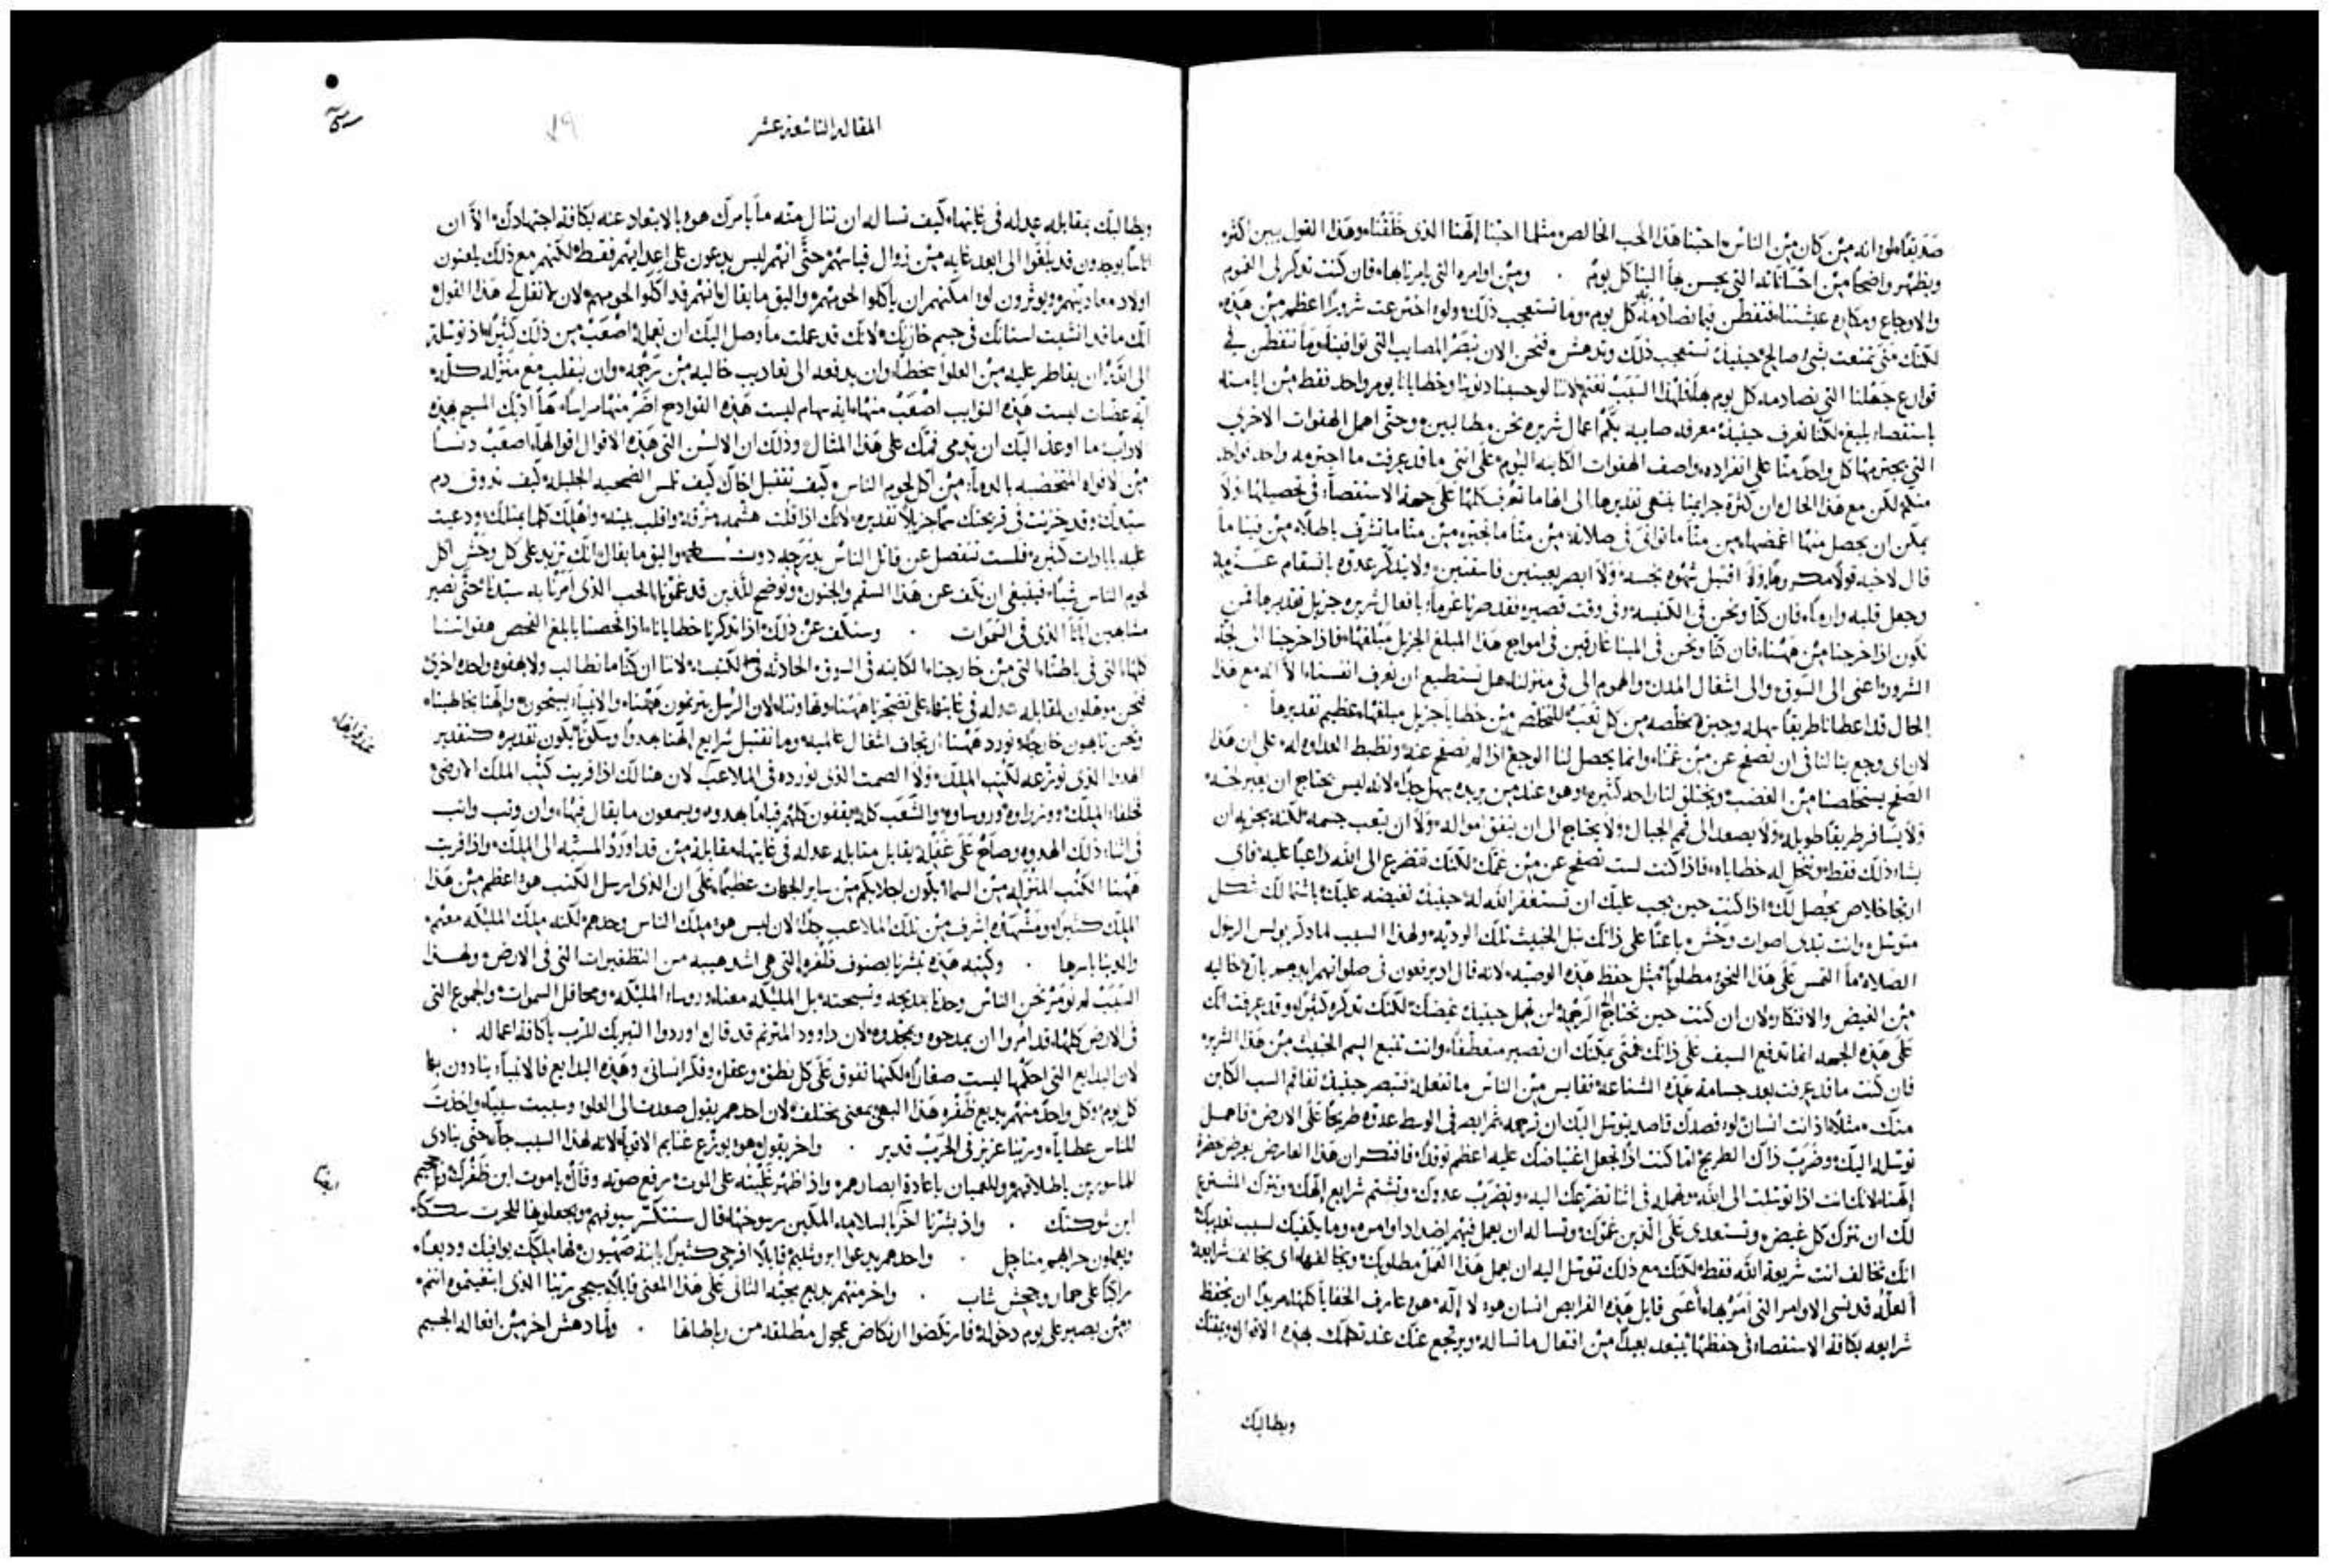 صديقًا لو انه من كان من الناس احبنا هذا الحب الخالص مثلما احبنا الهنا الذي خلقنا وهذا القول يبين اكثر
ويظهر واضحًا من احساناته التي يحسن بها الينا كل يوم . ومن اوامره التي يامرنا بها فان كنت تذكر لي الغموم
والاوجاع ومكاره عيشتنا فتفطن فيما تصادمه كل يوم وما تستعجب ذلك ولو اخترعت شرورًا اعظم من هذه
لكنك متى تمتعت بشي صالح حينيذ تستعجب ذلك وتدهش فنحن الان نبصر المصايب التي توافينا وما نتفطن في
قوارع جهلنا التي نصادمه كل يوم فلهذا السبب نغتم لاننا لو حسبنا ذنوبنا وخطايانا يوم واحد فقط من ايامنا
باستقصاء بليغ لكنا نعرف حينيذ معرفه صايبه بكم اعمال شريره نحن مطالبين وحتى اهمل الهفوات الاخرى
التي يجترمها كل واحد منا على انفراده واصف الهفوات الكاينه اليوم على انني ما قد عرفت ما اجترمه واحد فواحد
منكم لكن مع هذا الحال ان كثرة جرايمنا
يمكن ان يحصل منها اغمضها من منا ما توانى في صلاته من منا ما تجبر من منا ما تشرف باطلاً من فينا ما
قال لاخيه قولاً مكروهًا ولا اقتبل شهوه نجسه ولا ابصر بعينين فاسقتين ولا يتذكر عدوه بانسقام عزمه
وجعل قلبه وارمًا فان كنا ونحن في الكنيسه وفي وقت قصير قد صرنا غرماء بافعال شريره جزيل تقديرها فمن
نكون اذا خرجنا من ههنا فان كنا ونحن في المينا غارقين في امواج هذا المبلغ الجزيل مبلغها فاذا خرجنا الى لجة
الشرور اعني الى السوق والى اشغال المدن والهموم التي في منزلنا هل نستطيع ان نعرف انفسنا الا انه مع هذا
الحال قد اعطانا طريقًا سهله وجيزه مخلصه من كل تعب للتخلص من خطايا جزيل مبلغها عظيم تقديرها .
لان اي وجع ينالنا في ان نصفح عن من غمنا وانما يحصل لنا الوجع اذا لم نصفح عنه ونضبط العداوه له على ان هذا
الصفح يستخلصنا من الغضب ويختلق لنا راحه كثيره وهو عند من يريده سهل جدًا لانه ليس يحتاج ان يعبر لجة
ولا يسافر طريقًا طويله ولا يصعد الى قمم الجبال ولا يحتاج الى ان ينفق امواله ولا ان يتعب جسمه لكنه يجزيه ان
يشاء ذلك فقط وتنحل له خطاياه فاذا كنت لست تصفح عن من غمك لكنك تتضرع الى الله داعيًا عليه فاي
ارتجا خلاص يحصل لك اذا كنت حين يجب عليك ان تستغفر الله له حينيذ تغيضه عليك باشتمالك شكل
متوسل وانت تبدى اصوات وحش باعثًا على ذاتك نبل الخبيث تلك الرديه ولهذا السبب لما ذكر بولس الرسول
الصلاة ما التمس على هذا النحو مطلوبًا بمثل حفظ هذه الوصيه لانه قال اذ يرفعون في صلواتهم ايديهم بارة خاليه
من الغيض والافتكار لان ان كنت حين تحتاج الرحمه لن تهمل حينيذ غيضك لكنك تذكره كثيرًا وقد عرفت انك
على هذه الجهه انما تدفع السيف على ذاتك فمتى يمكنك ان تصير متعطفًا وانت تتبع السم الخبيث من هذا الشرير
فان كنت ما قد عرفت بعد جسامة هذه الشناعة فقايس من الناس ما تفعله فتبصر حينيذ تفاقم السب الكاين
منك مثلاً اذ انت انسان لو قصدك قاصد يتوسل اليك ان ترحمه ثم ابصر في الوسط عدوه طريحًا على الارض فاهمل
توسله اليك وضرب ذاك الطريح اما كنت اذًا تجعل اغتياضك عليه اعظم توقدًا فافتكر ان هذا العارض يعرض بحضرة
الهنا لانك انت اذا توسلت الى الله وتهمله في اثنا تضرعك اليه وتضرب عدوك وتشتم شرايع الهك وتترك المشترع
لك ان تترك كل غيض وتستعدى على الذين غموك وتساله ان يعمل فيهم اضداد اوامره وما يكفيك لسبب تعذيبك
انك تخالف انت شريعة الله فقط لكنك مع ذلك تتوسل اليه ان يعمل هذا العمل مطلوبك ويخالف هو اى يخالف شرايعه
العله قد نسى الاوامر التي امر بها اعسى قايل هذه الفرايض انسان هو لا اله هو عارف الخفايا كلها مريدًا ان تحفظ
شرايعه بكافة الاستقصاء في حفظها يتبعد بعيدًا من افتعال ما تساله ويرتجع عنك عند تكلمك بهذه الاقوال ويمقتك
ويطالبك
المقاله التاسعة عشر
١٩
ويطالبك بمقابله عدله في غايتها كيف تساله ان تنال منه ما يامرك هو بالابتعاد عنه بكافة اجتهادك الا ان
اناسًا يوجدون قد بلغوا الى ابعد غايه من زوال قياسهم حتى انهم ليس يدعون على اعدايهم فقط لكنهم مع ذلك يلعنون
اولاد معاديهم ويوثرون لو امكنهم ان ياكلوا لحومهم واليق ما يقال انهم قد اكلوا لحومهم لان لا تقل لي هذا القول
انك ما قد انشبت اسنانك في جسم حازنك لانك قد عملت ما وصل اليك ان تعمله اصعب من ذلك كثيرًا اذ توسلت
الى الله ان يقاطر عليه من العلو اسخطًا وان يدفعه الى تعاذيب خاليه من ترحمه وان ينقلب مع منزله كله
اية عضات ليست هذه النوايب اصعب منها اية سهام ليست هذه القوادح امر منها مراساً ما ادبك المسيح هذه
الاداب ما اوعز اليك ان تدمى فمك على هذا المثال وذلك ان الالسن التي هذه الاقوال اقوالها اصعب دنسًا
من الافواه المتخضبه بالدما من اكل لحوم الناس كيف تقتبل اخاك كيف تلمس الضحيه الجليله كيف تذوق دم
سيدك وقد خزنت في قريحتك سمًا جزيلاً تقديره لانك اذا قلت هشمه مزقه واقلب بيته واهلك كلما يملك ودعيت
عليه بابادات كثيره فلست تنفصل عن قاتل الناس واليق ما يقال انك تزيد على كل وحش اكل
لحوم الناس شيًا فينبغي ان نكف عن هذا السقم والجنون ونوضح للذين قد غمونا الحب الذي امرنا به سيدنا حتى نصير
مشابهين ابانا الذي في السموات . وسنكف عن ذلك اذا تذكرنا خطايانا اذا فحصنا بابلغ الفحص هفواتنا
كلها التي في باطننا التي من خارجنا الكاينه في السوق الحادثه في الكنيسه لاننا ان كنا ما نطالب ولا بهفوه واحده اخرى
فنحن موهلون لمقابله عدله في غايتها على تضجرنا ههنا وتهاوننا لان الرسل يترنمون ههنا والانبياء يسبحون والهنا يخاطبنا
ونحن تايهون خارجًا نورد ههنا ارتجاف اشغال عالميه وما نقتبل شرايع الهنا بهدو وسكون يكون تقديره كتقدير
الهدو الذي نوزعه لكتب الملك ولا الصمت الذي نورده في الملاعب لان هنالك اذا قريت كتب الملك الارضي
فخلفاء الملك ووزراوه وروساوه والشعب كله يقفون كلهم قيامًا بهدو ويسمعون ما يقال فيها وان وثب واثب
في اثناء ذلك الهدو وصاح على غفلة يقابل مقابله عدله في غايتها مقابلة من قد اورد المسبه الى الملك واذا قريت
ههنا الكتب المنزله من السما يكون اجلابكم من ساير الجهات عظيمًا على ان الذي ارسل الكتب هو اعظم من هذا
الملك كثيرًا ومشهدنا اشرف من تلك الملاعب جدًا لان ليس هو ملك الناس وحدهم لكنه ملك الملايكه معهم
والدنيا باسرها . وكتبه هذه تبشرنا بصنوف ظفره التي هي اشد هيبه من التظفيرات التي في الارض ولهذا
السبب لم نومر نحن الناس وحدنا بمديحه وتسبحته بل الملايكه معنا وروساء الملايكه ومحافل السموات والجموع التي
في الارض كلها قد امروا ان يمدحوه ويمجدوه لان داوود المترنم قد قال اوردوا التبريك للرب يا كافة اعماله .
لان البدايع التي احكمها ليست صغارًا لكنها تفوق على كل نطق وعقل وفكر انساني وهذه البدايع فالانبياء ينادون بها
كل يوم وكل واحد منهم يذيع ظفره هذا البهي بمعنى يختلف لان احدهم يقول صعدت الى العلو وسبيت سبيًا واخذت
للناس عطايا وربنا عزيز في الحرب قدير . واخر يقول هو يوزع غنايم الاقويا لانه لهذا السبب جاء حتى ينادي
للماسورين باطلاقهم وللعميان باعادة ابصارهم واذ اظهر غلبته على الموت رفع صوته وقال يا موت اين ظفرك ويا جحيم
اين شوكتك . واذ بشرنا اخر بالسلامه المكين رسوخها قال ستنكسر سيوفهم ويجعلونها للحرث سككًا
ويعملون حرابهم مناجل . واحدهم يدعوا ايروشليم قايلاً افرحي كثيرًا يا ابنة صهيون فها ملكك يوافيك وديعًا
راكبًا على حمار وجحش شاب . واخر منهم يذيع مجيه الثاني على هذا المعنى قايلاً سيجي ربنا الذي ابتغيتموه انتم
ومن يصبر على يوم دخوله فارتكضوا ارتكاض عجول مطلقه من رباطاتها . ولما دهش اخر من افعاله الجسيم